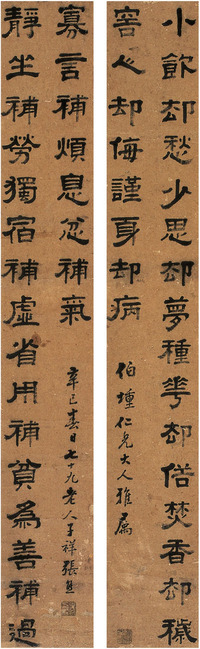 小飲却愁少思却夢種花却俗焚香却穢
客人却侮謹身却病
伯堙仁兄大人雅屬
靜坐補勞獨宿補虛省用補貧為善補過
寡言補煩息忿補氣
辛巳春日七十九老人子祥張熊